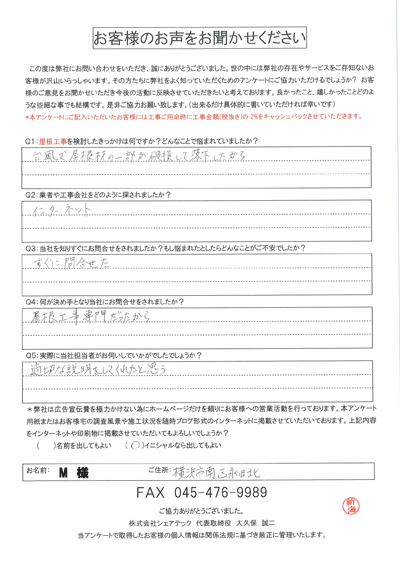 お客様のお声をお聞かせください
この度は弊社にお問い合わせをいただき、誠にありがとうございました。世の中には弊社の存在やサービスをご存知ないお
客様が沢山いらっしゃいます。その方たちに弊社をよく知っていただくためのアンケートにご協力いただけるでしょうか？ お客
様のご意見をお聞かせいただき今後の活動に反映させていただきたいと考えております。良かったこと、嬉しかったことどのよ
うな些細な事でも結構です。是非ご協力お願い致します。（出来るだけ具体的に書いていただければ幸いです）
*本アンケートにご記入いただいたお客様には工事ご用命時に工事金額(税抜き)の 2%をキャッシュバックさせていただきます。
Q1:屋根工事を検討したきっかけは何ですか？どんなことで悩まれていましたか？
台風で屋根材の一部が破損して落下したから
Q2:業者や工事会社をどのように探されましたか？
インターネット
Q3:当社を知りすぐにお問合せをされましたか？もし悩まれたとしたらどんなことがご不安でしたか？
すぐに問合せた
Q4:何が決め手となり当社にお問合せをされましたか？
屋根工事専門だったから
Q5:実際に当社担当者がお伺いしていかがでしたでしょうか？
適切な説明をしてくれたと思う
＊弊社は広告宣伝費を極力かけない為にホームページだけを頼りにお客様への営業活動を行っております。本アンケート
用紙またはお客様宅の調査風景や施工状況を随時ブログ形式のインターネットに掲載させていただいております。上記内容
をインターネットや印刷物に掲載させていただいてもよろしいでしょうか？
（　）名前を出してもよい　（○）イニシャルなら出してもよい
お名前： M 様 ご住所： 横浜市南区永田北
FAX 045-476-9989
ご協力ありがとうございました。
株式会社シェアテック 代表取締役 大久保 誠二
当アンケートで取得したお客様の個人情報は関係法規に基づき厳正に管理いたします。
新海